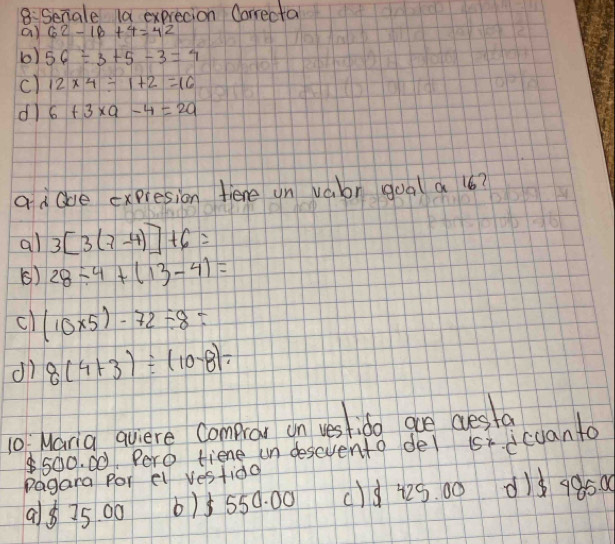 8: Señale la exprecion Correcta
a) 62 - 18 + 4 = 42
b) 56 ÷ 3 + 5 - 3 = 4
c) 12 x 4 ÷ 1 + 2 = 16
d) 6 + 3 x 9 - 4 = 29
9: ¿Que expresion tiene un valor igual a 16?
a) 3[3(7-4)] + 6 =
b) 28 ÷ 4 + (13 - 4) =
c) (10x5) - 72 ÷ 8 =
d) 8(4+3) ÷ (10-8) =
10: Maria quiere Comprar un vestido que cuesta
$500.00. Pero tiene un descuento del 15%. ¿cuanto
pagara Por el vestido
a) $ 75.00 b) $ 550.00 c) $ 425.00 d) $ 485.00